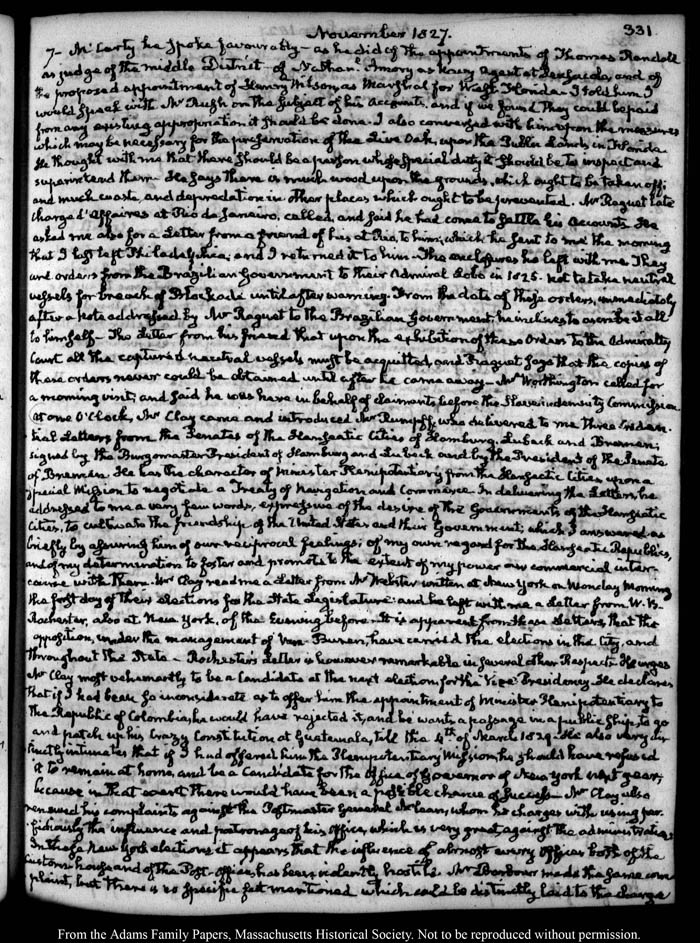 November 1827.
331
7— McCarty he spoke favourably— as he did of the appointments of Thomas Randall
as judge of the middle District— of Nathanl. Amory as Navy Agent at Pensacola, and of
the proposed appointment of Henry Wilson, as Marshal for West-Florida. I told him I
would speak with Mr Rush on the subject of his Accounts, and if we found they could be paid
from any existing appropriation it should be done. I also conversed with him upon the measures
which may be necessary for the preservation of the Live Oak, upon the Public Lands in Florida
He thought with me that there should be a person whose special duty it should be to inspect and
superintend them— He says there is much wood upon the grounds, which ought to be taken off;
and much waste, and depredation in other places which ought to be prevented. Mr Raguet late
Chargé d'Affaires at Rio de Janeiro, called, and said he had come to settle his Accounts. He
asked me also for a Letter from a friend of his at Rio, to him; which he sent to me the morning
that I left Philadelphia; and I returned it to him— The enclosures he left with me. They
are orders from the Brazilian Government to their Admiral Lobo in 1826. not to take neutral
vessels for breach of Blockade until after warning. From the date of these orders, immediately
after a Note addressed by Mr Raguet to the Brazilian Government, he inclines to ascribe it all
to himself— The Letter from his friend that upon the exhibition of these Orders to the Admiralty
Court all the captured neutral vessels must be acquitted, and Raguet says that the copies of
these orders never could be obtained until after he came away— Mr Worthington called for
a morning visit, and said he was here in behalf of claimants before the Slave indemnity Commission.
At one O'Clock, Mr Clay came and introduced Mr Rumpff, who delivered to me three Creden-
tial Letters from the Senates of the Hanseatic Cities of Hamburg, Lubeck and Bremen;
signed by the Burgomaster President of Hamburg and Lubeck and by the President of the Senate
of Bremen. He has the character of Minister Plenipotentiary from the Hanseatic Cities upon a
special Mission to negotiate a Treaty of Navigation and Commerce. In delivering the Letters, he
addressed to me a very few words, expressive of the desire of the Governments of the Hanseatic
Cities, to cultivate the friendship of the United States and their Government; which I answered as
briefly by assuring him of our reciprocal feelings; of my own regard for the Hanseatic Republics,
and of my determination to foster and promote to the extent of my power our commercial inter-
course with them. Mr Clay read me a Letter from Mr Webster written at New York on Monday Morning
the first day of their elections for the State Legislature: and he left with me a Letter from W. B.
Rochester, also at New York, of the Evening before. It is apparent from these Letters, that the
opposition, under the management of Van Buren, have carried the elections in the City, and
throughout the State— Rochester's Letter is however remarkable in several other Respects. He urges
Mr Clay most vehemently to be a Candidate at the next election for the Vice-Presidency. He declares
that if I had been so inconsiderate as to offer him the appointment of Minister Plenipotentiary to
the Republic of Colombia, he would have rejected it, and he wants a passage in a public Ship, to go
and patch up his crazy Constitution at Guatemala, till the 4th of March 1829. He also very dis-
tinctly intimates that if I had offered him the Plenipotentiary Mission, he should have refused
it to remain at home, and be a Candidate for the Office of Governor of New York next year;
because in that event there would have been a possible chance of success— Mr Clay also
renewed his complaints against the Postmaster General McLean, whom he charges with using per-
fidiously the influence and patronage of his office, which is very great, against the administration.
In these New York elections it appears that the influence of almost every Officer both of the
Custom house and of the Post-office, has been violently hostile. Mr Barbour made the same com-
plaint, but there is no specific fact mentioned which could be distinctly laid to the charge
From the Adams Family Papers, Massachusetts Historical Society. Not to be reproduced without permission.